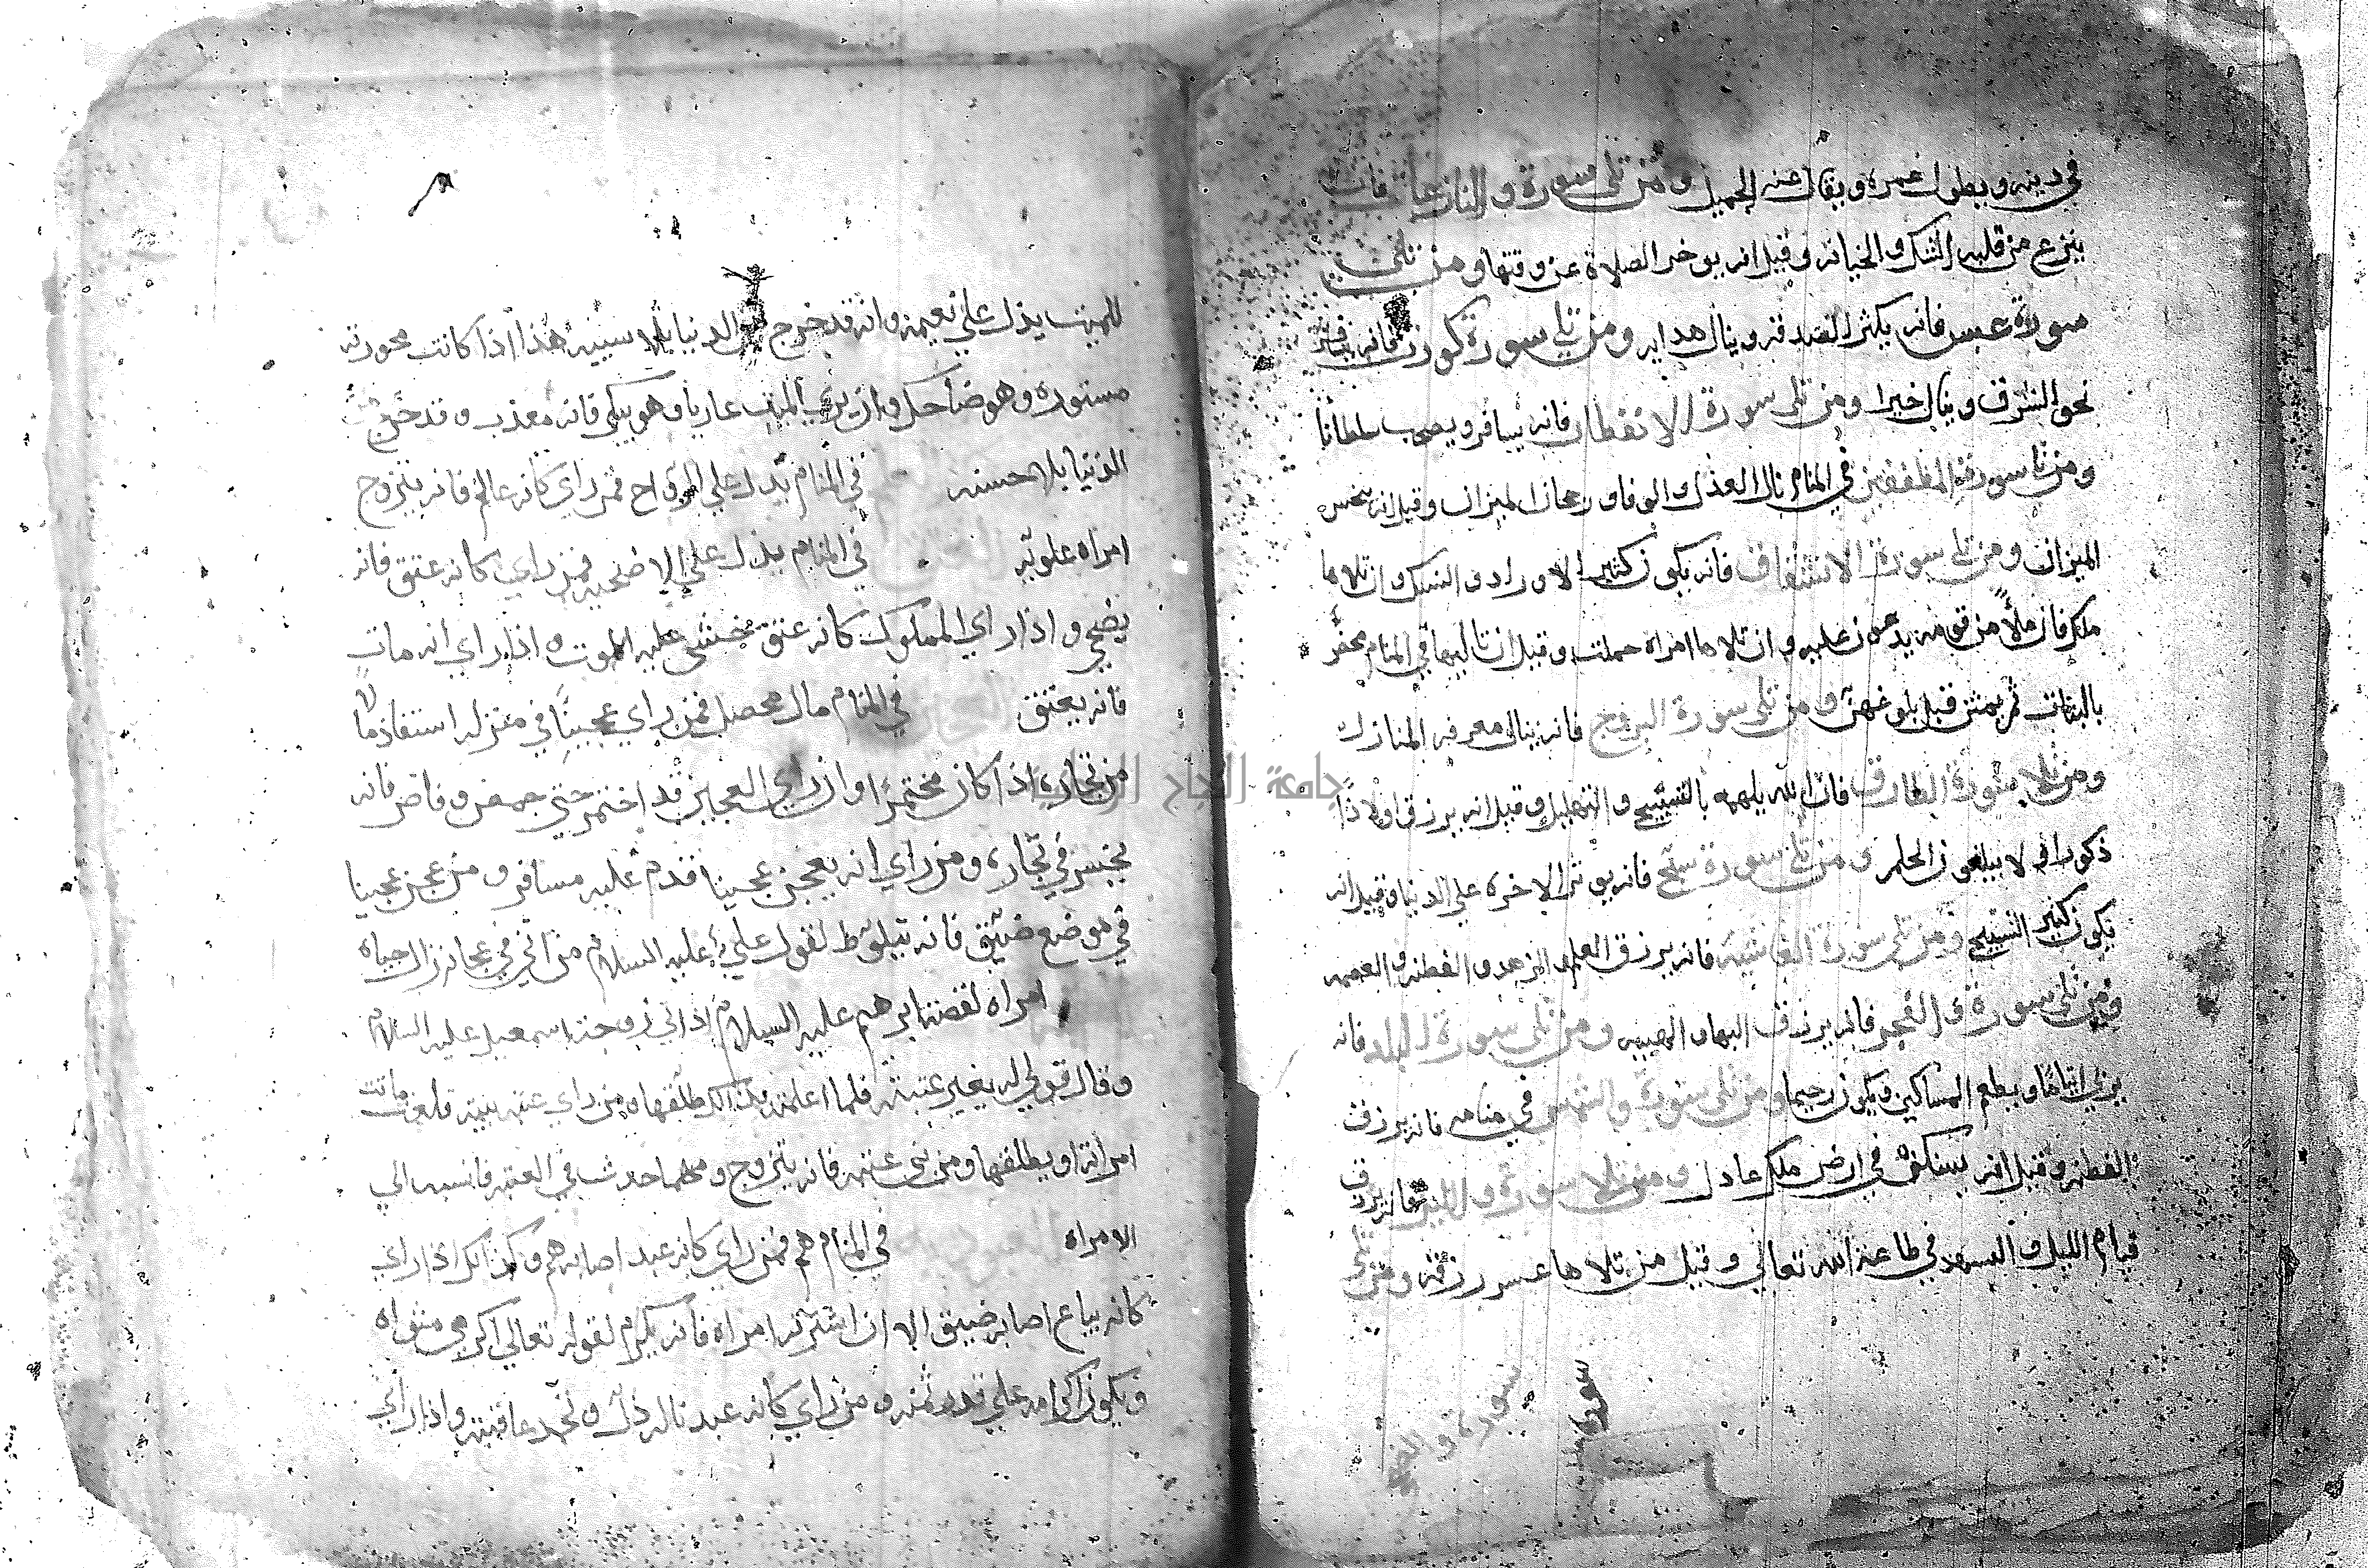 في دينه ويطول عمره ويقال عنه الجميل ومن تلى سورة والنازعات فانه
ينزع من قلبه الشك والخيانه وقيل انه يوخر الصلاة عن وقتها ومن تلى
سورة عبس فانه يكثر الصدقه وينال هدايه ومن تلى سورة كورت فانه يسافر
نحو الشرق وينال خيرا ومن تلى سورة الانفطار فانه يسافر ويصحب سلطانا
ومن تلا سورة المطففين في المنام نال العدل والوفا ورجحان الميزان وقيل انه يبخس
الميزان ومن تلى سورة الانشقاق فانه يكون كثير الاوراد والنسك وان تلاها
ملك فان ملأ من قومه يدعون عليه وان تلاها امراه حملت وقيل ان تاليها في المنام
بالبنات ثم يمتن قبل بلوغهن ومن تلى سورة البروج فانه ينال معرفه المنازل
ومن تلا سورة الطارق فان الله يلهمه بالتسبيح والتهليل وقيل انه يرزق اولادًا
ذكورا ولا يبلغون الحلم ومن تلى سورة سبح فانه يوتر الاخره على الدنيا وقيل انه
يكون كثير التسبيح ومن تلى سورة الغاشيه فانه يرزق العلم والزهد والفطنه
ومن تلى سورة والفجر فانه يرزق البها والهيبه ومن تلى سورة البلد فانه
يربي ايتاما ويطعم المساكين ويكون رحيما ومن تلى سورة والشمس في منامه فانه يرزق
الفطنه وقيل انه يسكن في ارض ملك عادل ومن تلا سورة والليل فانه يرزق
قيام الليل والسهد في طاعة الله تعالى وقيل من تلاها عسر رزقه ومن تلى
سورة
سورة والضحى
للميت يدل على نعيمه وانه قد خرج من الدنيا بلا سيئه هذا اذا كانت عورته
مستوره وهو ضاحك وان يرى الميت عاريا وهو يبكي فانه معذب وقد خرج من
الدنيا بلا حسنه في المنام يدل على الزواج فمن راي كانه عالج فانه يتزوج
امراه علويه في المنام يدل على الاضحيه فمن راي كانه عتق فانه
يضحي واذا راي المملوك كانه عتق يخشى عليه الموت واذا راي انه مات
فانه يعتق العجين في المنام مال محصل فمن راي عجينا في منزله استفاد مالا
من تجاره اذا كان مختمرًا وان راي العجين قد اختمر حتي حمض وفاض فانه
يخسر في تجاره ومن راي انه يعجن عجينا قدم عليه مسافر ومن عجن عجينا
في موضع ضيق فانه يتلوط لقول علي عليه السلام من اتى في عجانه زال حياه
امراه لقصة ابرهيم عليه السلام اذ اتى زوجة اسمعيل عليه السلام
وقال قولي له يغير عتبته فلما اعلمته بذالك طلقها ومن راي عتبة بيته قلعت ماتت
امراته او يطلقها ومن بنى عتبه فانه يتزوج ومهما حدث في العتبه فانسبه الي
الامراه العبوديه في المنام هم فمن راي كانه عبد اصابه هم وكذالك اذا راي
كانه يباع اصابه ضيق الا ان اشترته امراه فانه يكرم لقوله تعالى اكرمي مثواه
ويكون اكرامه على قدر ثمنه ومن راي كانه عبد ناله ذل وتحمد عاقبته واذا راي
جامعة النجاح الوطنية